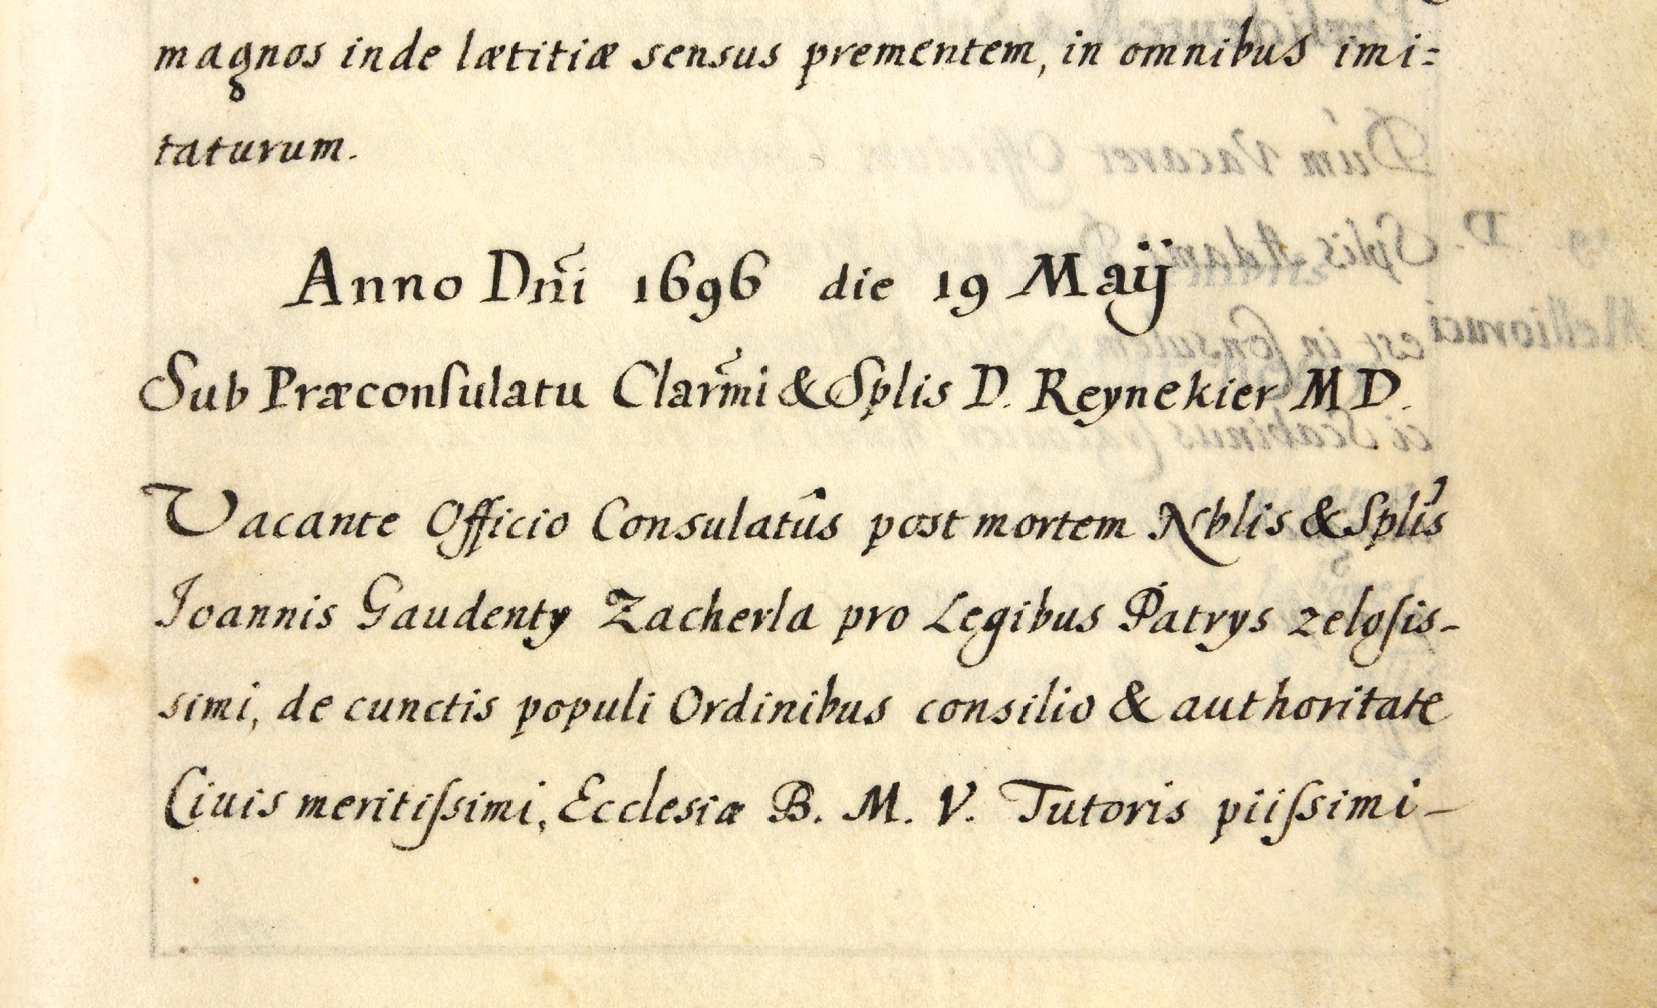 magnos inde lætitiæ sensus prementem, in omnibus imi=
taturum.
Anno Dn̄i 1696 die 19 Maÿ
Sub Præconſulatu Clarm̃i & Splis D. Reynekier M D.
Vacante Officio Consulatûs post mortem Nblis & Splis
Ioannis Gaudenty Zacherla pro Legibus Patrys zeloſis-
simi, de cunctis populi Ordinibus consilio & authoritate
Ciuis meritiſsimi, Ecclesiæ B. M. V. Tutoris piiſsimi-